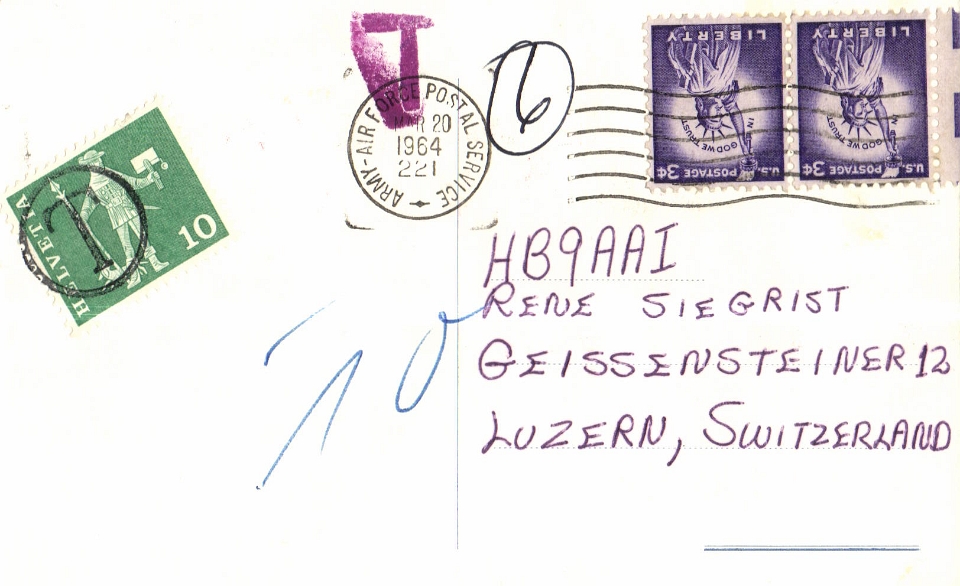 T
6
ARMY-AIR FORCE POSTAL SERVICE
MAR 20
1964
221
LIBERTY
IN GOD WE TRUST
U.S. POSTAGE 3¢
LIBERTY
IN GOD WE TRUST
U.S. POSTAGE 3¢
HELVETIA
10
T
10
HB9AAI
RENE SIEGRIST
GEISSENSTEINER 12
LUZERN, SWITZERLAND